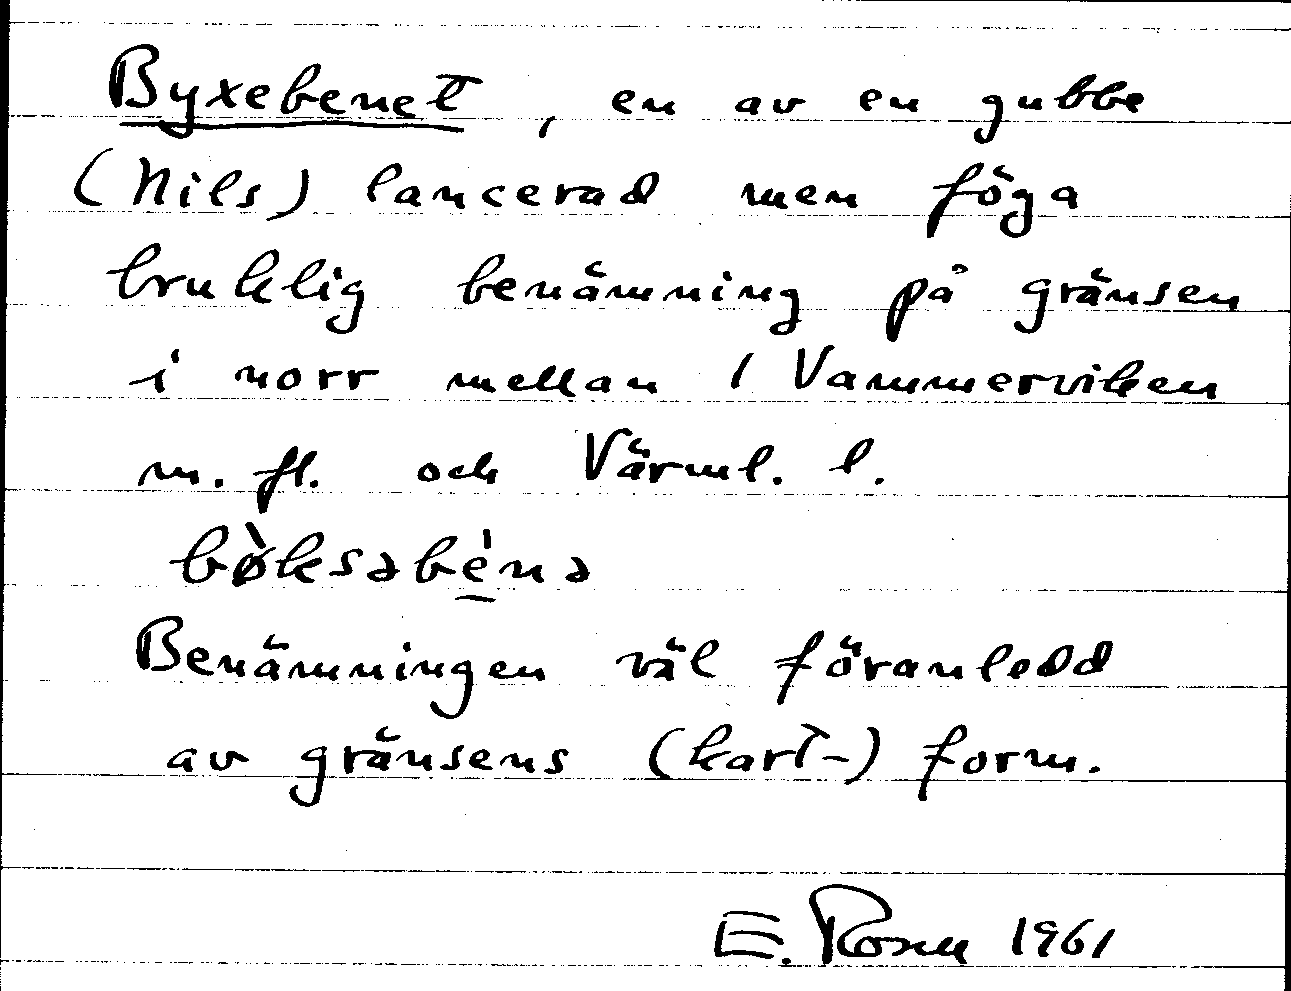 Byxebenet, en av en gubbe
(Nils) lancerad men föga
bruklig benämning på gränsen
i norr mellan 1 Vammerviken
m. fl. och Värml. l.
bø̀ksabe̱̍na
Benämningen väl föranledd
av gränsens (kart-) form.
E. Rosen 1961